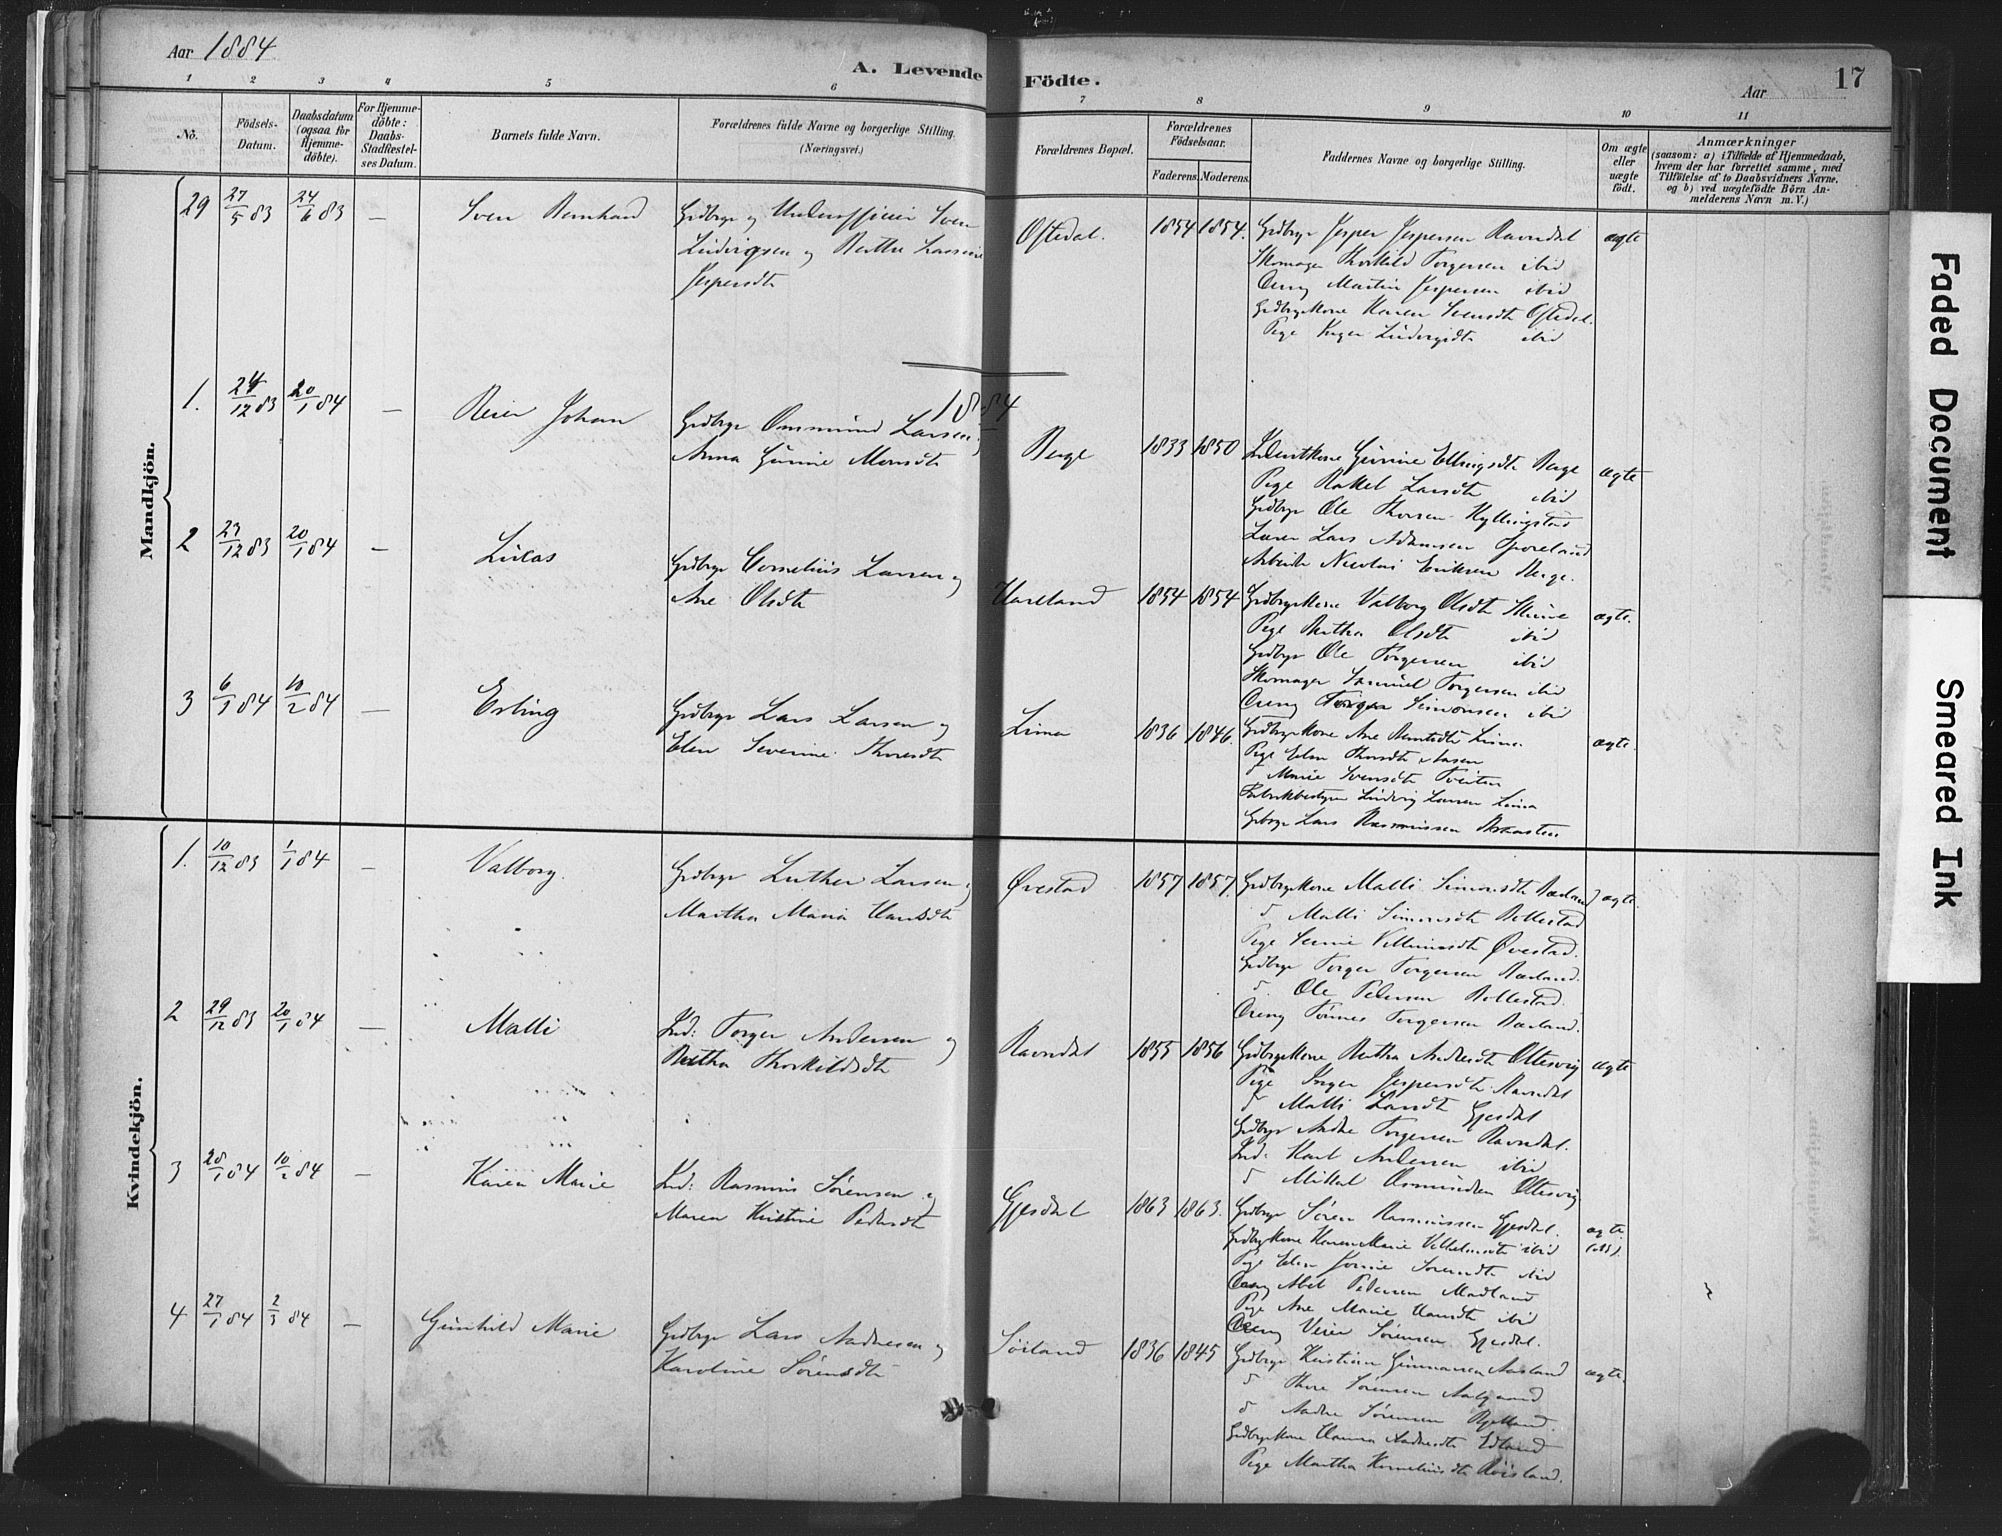 Aar 1884
A. Levende Födte.
Aar
17
1 2 3 4 5 6 7 8 9 10 11
No.
Födsels-Datum.
Daabsdatum (ogsaa for Hjemme-döbte).
For Hjemme-döbte: Daabs-Stadfestel-ses Datum.
Barnets fulde Navn.
Forældrenes fulde Navne og borgerlige Stilling.
(Næringsvei.)
Forældrenes Bopæl.
Forældrenes Födselsaar.
Faderens. Moderens.
Faddernes Navne og borgerlige Stilling.
Om ægte eller uægte födt.
Anmærkninger
(saasom: a) i Tilfælde af Hjemmedaab,
hvem der har forrettet samme, med
Tilföielse af to Daabsvidners Navne,
og b) ved uægtefödte Börn An-
melderens Navn m. V.)
Mandkjön.
29 27/5 83 24/6 83 — Sven Bernhard
Grdbrgr og Underofficier Sven
Ludvigsen og Berthe Lassine
Jespersdt
Oftedal. 1854 1854.
Grdbrgr Jesper Jespersen Ravndal
Skomager Thorkild Torgersen ibid
Ung Martin Jespersen ibid
Grdbrgrkone Karen Svensdt Oftedal.
Pige Inger Ludvigsdt ibid
ægte
1884
1. 24/12 83 20/1 84 — Reier Johan
Grdbrgr Omsmund Larsen
Anna Gurine Monsdt
Berge 1833 1850
Gurine Ellingsdt Berge
Pige Rakel Larsdt ibid
Grdbrgr Ole Thorsen Kyllingstad
Lærer Lars Adamsen
Arbeider Nicolai Eriksen Berge.
ægte
2 27/12 83 20/1 84 — Lukas
Grdbrgr Cornelius Larsen og
Ane Olsdt
Haaland 1854 1854
Grdbrgrkone Valborg Olsdt
Pige Bertha Olsdt ibid
Grdbrgr Ole Torgersen ibid
Skomager Samuel Torgersen ibid
Ung Simonsen ibid
ægte.
3 6/1 84 10/2 84 — Erling
Grdbrgr Lars Larsen og
Elen Severine Thoresdt
Lima 1836 1846.
Grdbrgrkone Ane Lima.
Pige Elen Thorsdt Aasen
" Marie Svensdt Tveiten
Fabrikbestyrer Ludvig Larsen Lima
Grdbrgr Lars Rasmussen
ægte.
Kvindekjön.
1. 10/12 83 1/1 84 — Valborg.
Grdbrgr Luther Larsen og
Martha Maria Hansdt
Øvestad 1857 1857.
Grdbrgrkone Malli Simonsdt Bærland
" Malli Simonsdt Bollestad
Pige Villumsdt Øvestad.
Grdbrgr Torger Torgersen Bærland.
" Ole Pedersen Bollestad.
Ung Tønnes Torgersen Bærland.
ægte.
2 29/12 83 20/1 84 — Malli
Ind: Torger Andersen og
Bertha Thorkildsdt
Ravndal 1855 1856
Grdbrgrkone Bertha Andersdt Oltesvig
Pige Inger Jespersdt Ravndal
" Malli Larsdt Gjesdal
Grdbrgr Andre Torgersen Ravndal.
Ind: Karl Andersen ibid
" Mikkel Osmundsen Oltesvig
ægte
3 28/1 84 10/2 84 — Karen Marie
Ind: Rasmus Sørensen og
Maren Kristine Pedersdt
Gjesdal 1863 1863.
Grdbrgr Søren Rasmussen Gjesdal.
Grdbrgrkone Karen Marie Vilhelmsdt ibid
Pige Elen Sørensdt ibid
Ung Abel Pedersen Madland
Pige Ane Marie Hansdt ibid
Ung Veier Sørensen Gjesdal.
ægte
4 27/1 84 2/3 84 — Gunhild Marie
Grdbrgr Lars Aadnesen og
Karoline Sørensdt
Søiland 1836 1845
Grdbrgr Kristian Gunnarsen Aasland
" Thore Sørensen Aalgaard
" Aadne Sørensen
Grdbrgrkone Hanna Aadnesdt Edland
Pige Martha Kornelius dt
ægte.
Faded Document
Smeared Ink